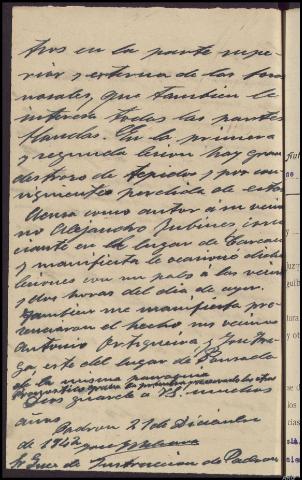 tros en la parte supe-
rior y externa de las fosas
nasales, que tambien le
interesa todas las partes
blandas. En la primera
y segunda lesion hay gran
destrozo de tejidos y por con-
siguiente perdida de estos
Acusa como autor á su veci-
no Alejandro Jubines,
ciante en el lugar de
y manifiesta le ocasionó dichas
lesiones con un palo á las veinte
y dos horas del dia de ayer.
Tambien me manifiesta pre-
senciaron el hecho, sus vecinos
Antonio Ortigueira y José
este del lugar de
de la misma parroquia
Pronostico grave la primera y reservado las otras
Dios guarde a VS. muchos
años
Padron 21 de Diciembre
de 1942
Sr Juez de Instruccion de Padron